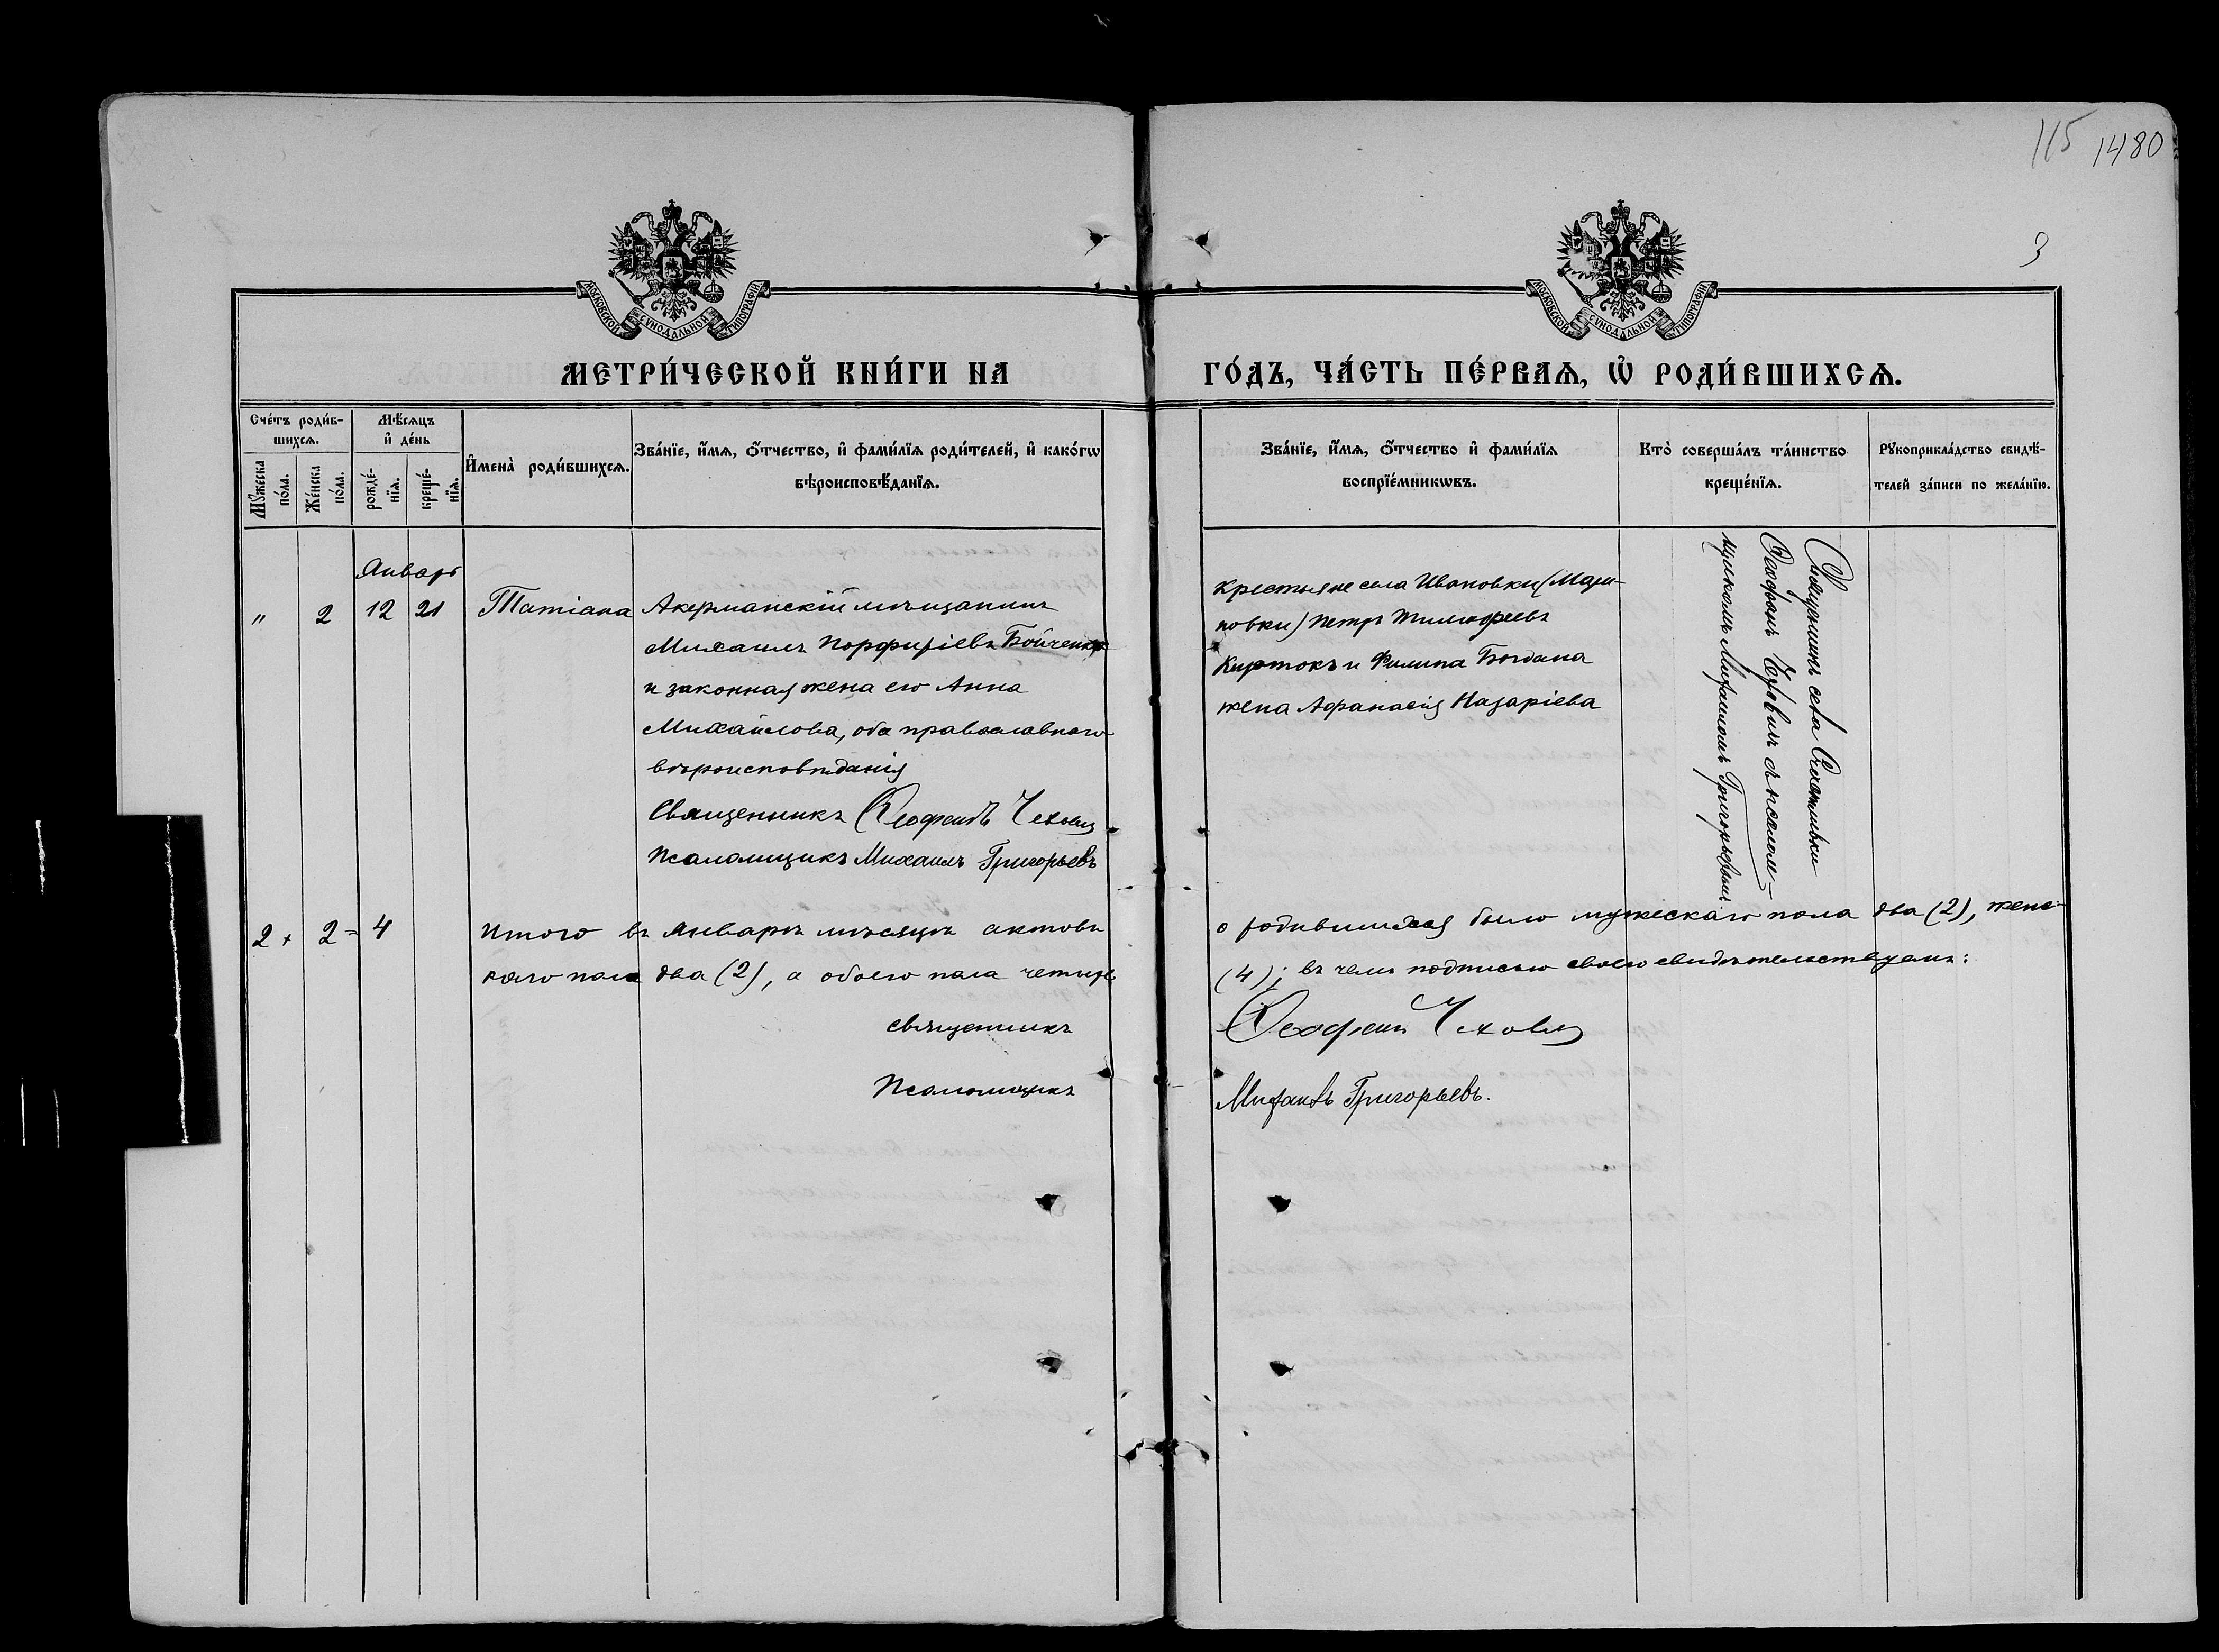 115 1480
3
МОСКОВСКОЙ СУНОДАЛЬНОЙ ТИПОГРАФІИ
МОСКОВСКОЙ СУНОДАЛЬНОЙ ТИПОГРАФІИ
МЕТРИ́ЧЕСКОЙ КНИ́ГИ НА ГО́ДЪ, ЧА́СТЬ ПЕ́РВАѦ, Ѡ҆ РОДИ́ВШИХСѦ.
Сче́тъ роди́в-
шихсѧ.
Мꙋ́жеска
по́ла.
Же́нска
по́ла.
Мѣ́сѧцъ
и҆ де́нь
рожде́-
нїѧ.
креще́-
нїѧ.
И҆мена̀ роди́вшихсѧ.
Зва́нїе, и҆́мѧ, ѻ҆́тчество, и҆ фами́лїѧ роди́телей, и҆ како́гѡ
вѣроисповѣ́данїѧ.
Зва́нїе, и҆́мѧ, ѻ҆́тчество и҆ фами́лїѧ
воспрїе́мникѡвъ.
Кто̀ соверша́лъ та́инство
креще́нїѧ.
Рꙋкоприкла́дство свидѣ́-
телей за́писи по жела́нїю.
Январь
" 2 12 21 Татіана
Акерманскій мѣщанинъ
Михаилъ Порфиріевъ Бойченко
и законная жена его Анна
Михайлова, оба православнаго
вѣроисповѣданія
Священникъ Ѳеофанъ
Псаломщикъ Михаилъ Григорьевъ
Крестьяне села Ивановки (Мари-
новки) Петръ Тимофеевъ
и Филипа Богдана
жена Афанасія Назаріева
Священникъ села
Ѳеофанъ съ псалом-
щикомъ Михаиломъ Григорьевымъ
2 + 2 = 4 Итого въ Январѣ мѣсяцѣ актовъ о родившихся было мужескаго пола два (2), женс-
каго пола два (2), а обоего пола четыре (4); въ чемъ подписью своею свидѣтельствуемъ:
Священникъ Ѳеофанъ
Псаломщикъ Михаилъ Григорьевъ.